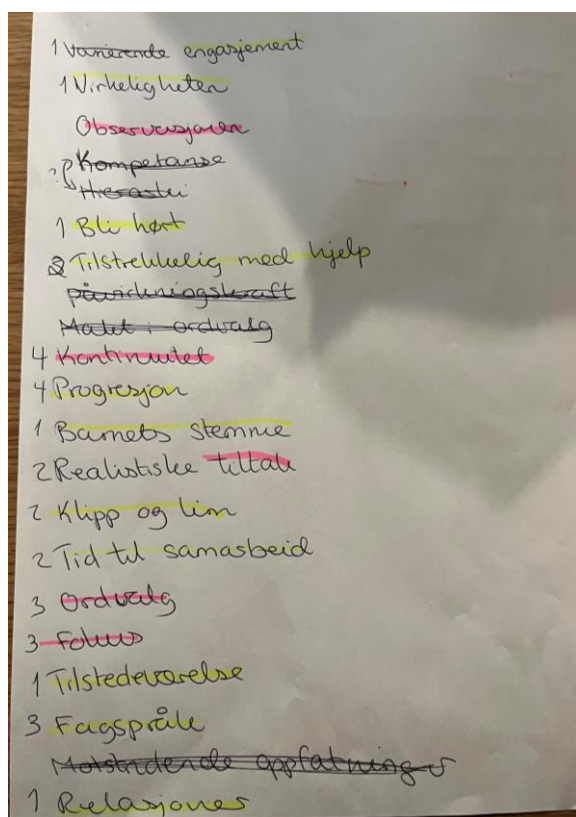 1 Varierende engasjement
1 Virkeligheten
Observasjonen
? Kompetanse
Hierarki
1 Bli hørt
2 Tilstrekkelig med hjelp
påvirkningskraft
Makt i ordvalg
4 Kontinuitet
4 Progresjon
1 Barnets stemme
2 Realistiske tiltak
2 Klipp og lim
2 Tid til samarbeid
3 Ordvalg
3 Fokus
1 Tilstedeværelse
3 Fagspråk
Motstridende oppfatninger
1 Relasjoner